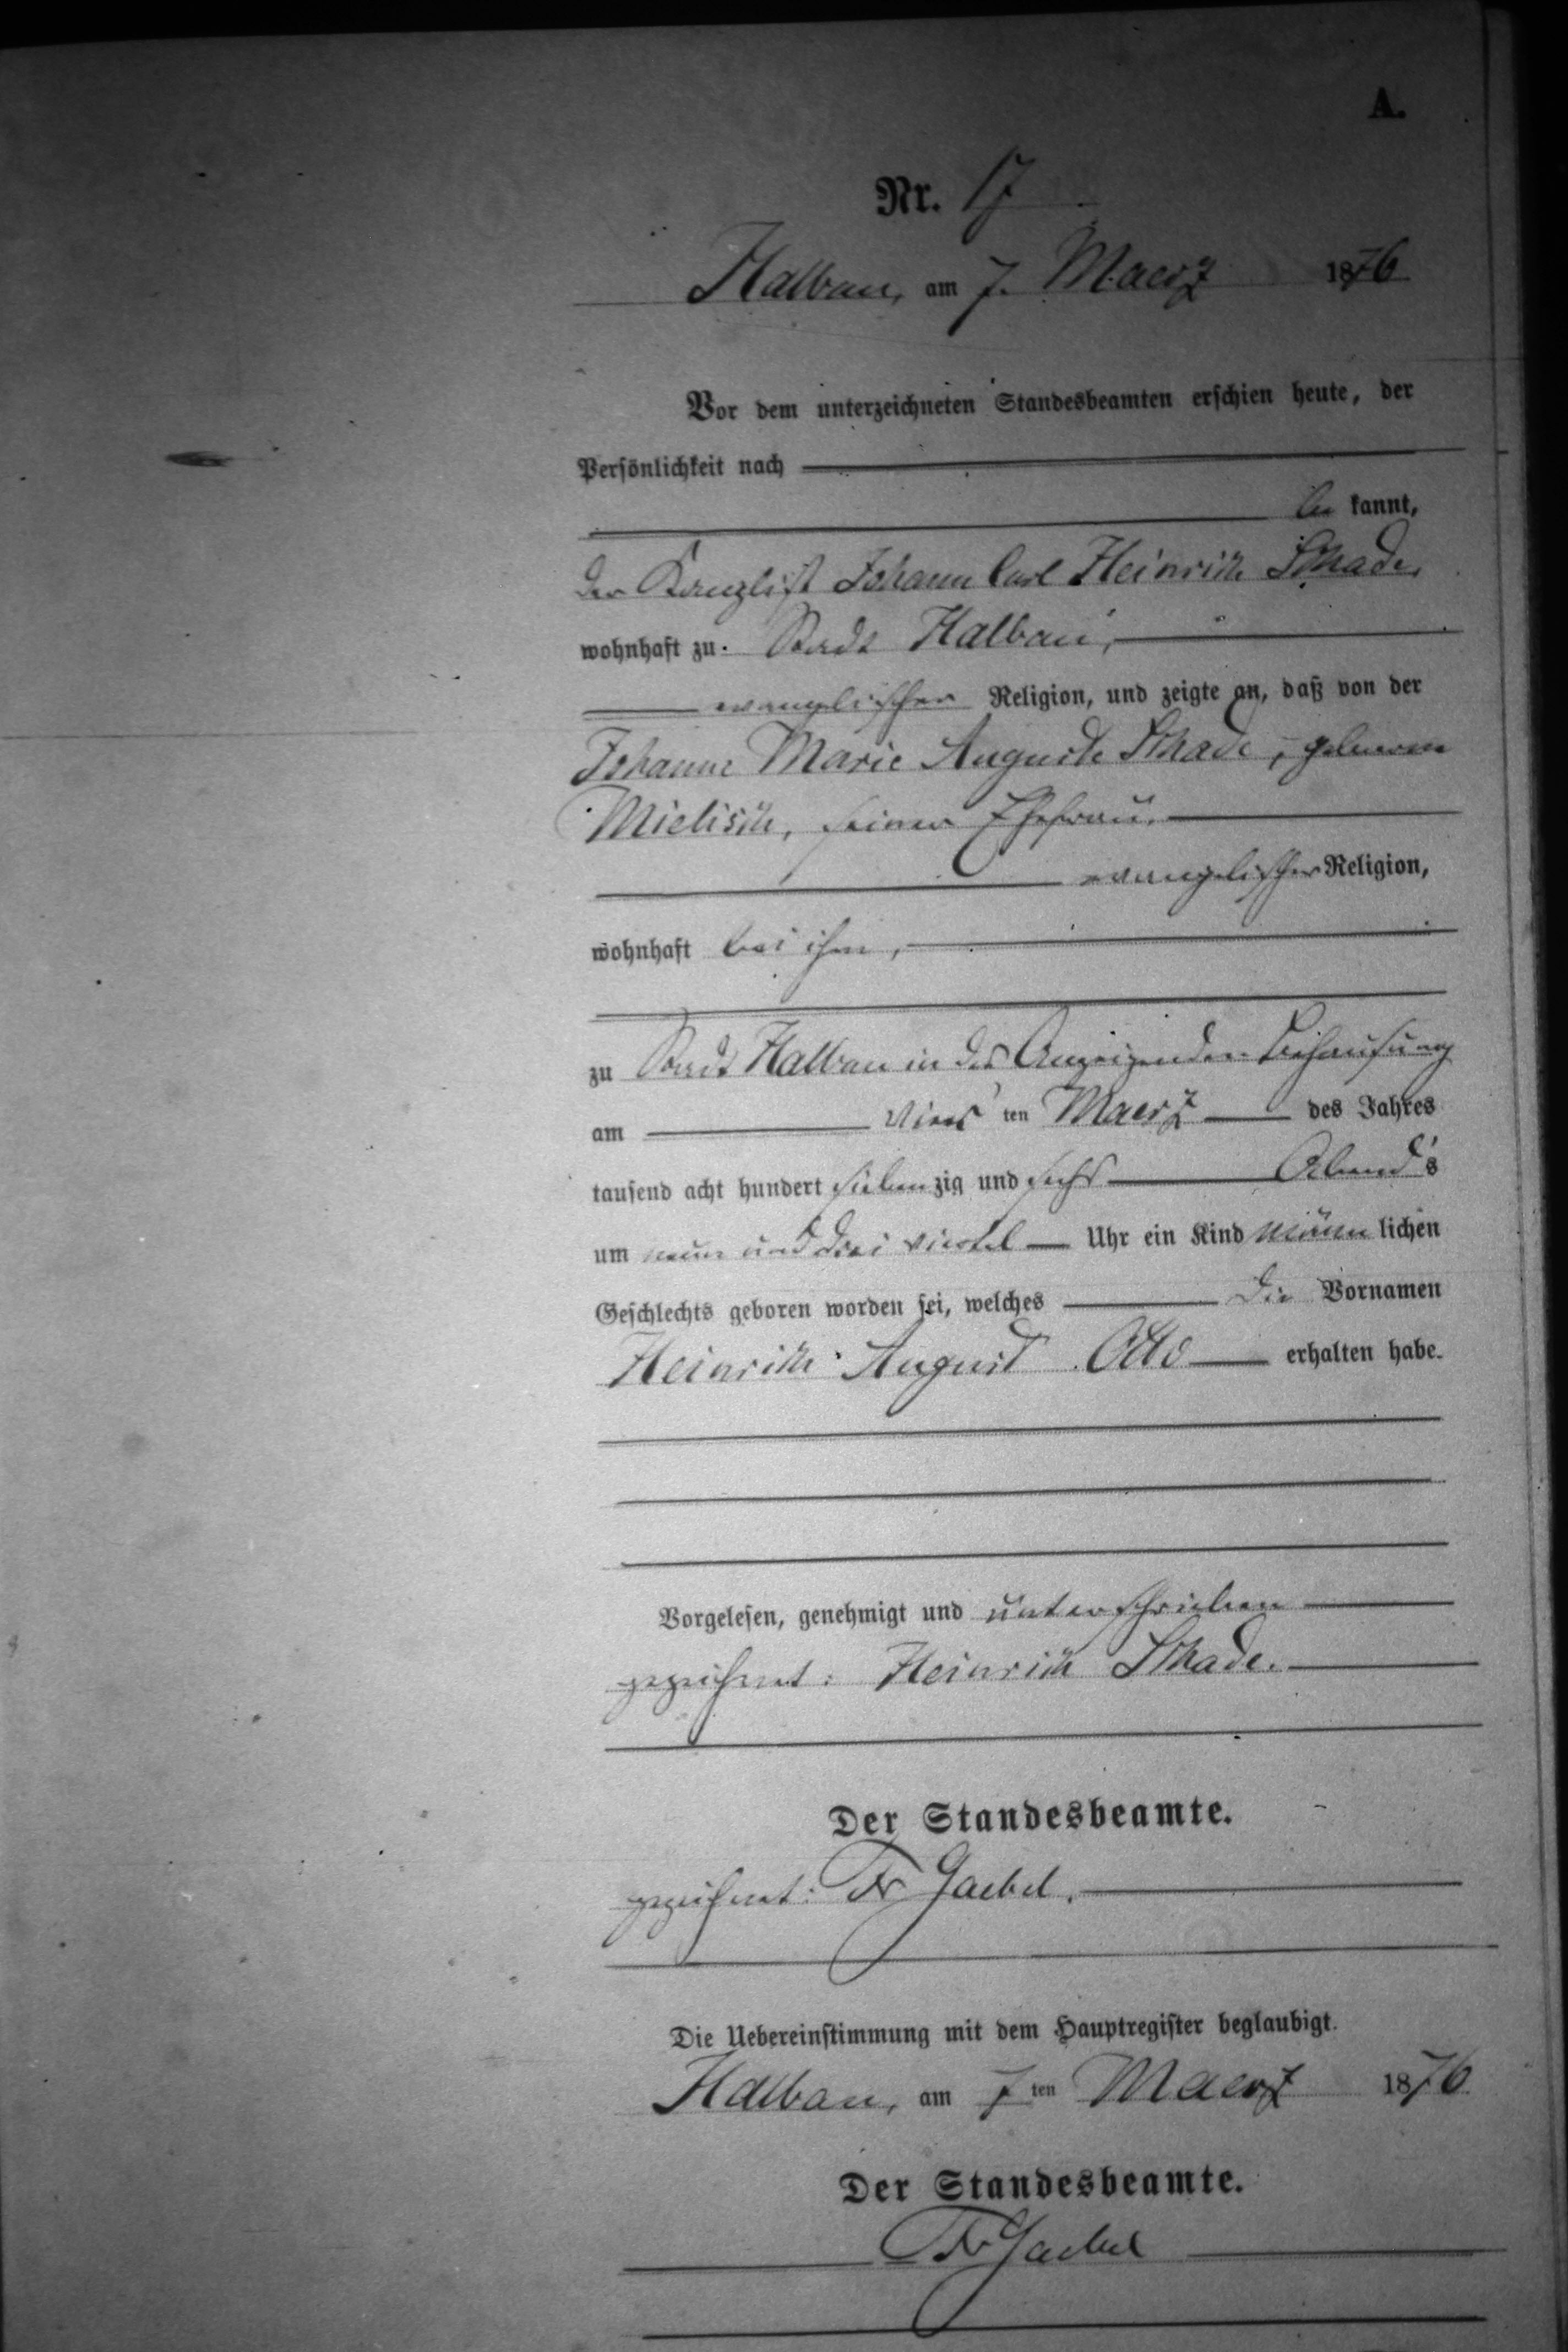 A.
Nr. 17
Halbau, am 7. Maerz 1876
Vor dem unterzeichneten Standesbeamten erschien heute, der
Persönlichkeit nach
be kannt,
der Kanzlist Johann Carl Heinrich Schade,
wohnhaft zu Stadt Halbau,
evangelischer Religion, und zeigte an, daß von der
Johanne Marie Auguste Schade, geborene
Mielisch, seiner Ehefrau,
evangelischer Religion,
wohnhaft bei ihm,
zu Stadt Halbau in des Anzeigenden Behausung
am vier ten Maerz des Jahres
tausend acht hundert sieben zig und sechs Abend's
um neun und drei viertel Uhr ein Kind männ lichen
Geschlechts geboren worden sei, welches die Vornamen
Heinrich August Otto erhalten habe.
Vorgelesen, genehmigt und unterschrieben
gezeichnet: Heinrich Schade.
Der Standesbeamte.
gezeichnet: Fr Gaebel.
Die Uebereinstimmung mit dem Hauptregister beglaubigt.
Halbau, am 7 ten Maerz 1876
Der Standesbeamte.
Fr Gaebel